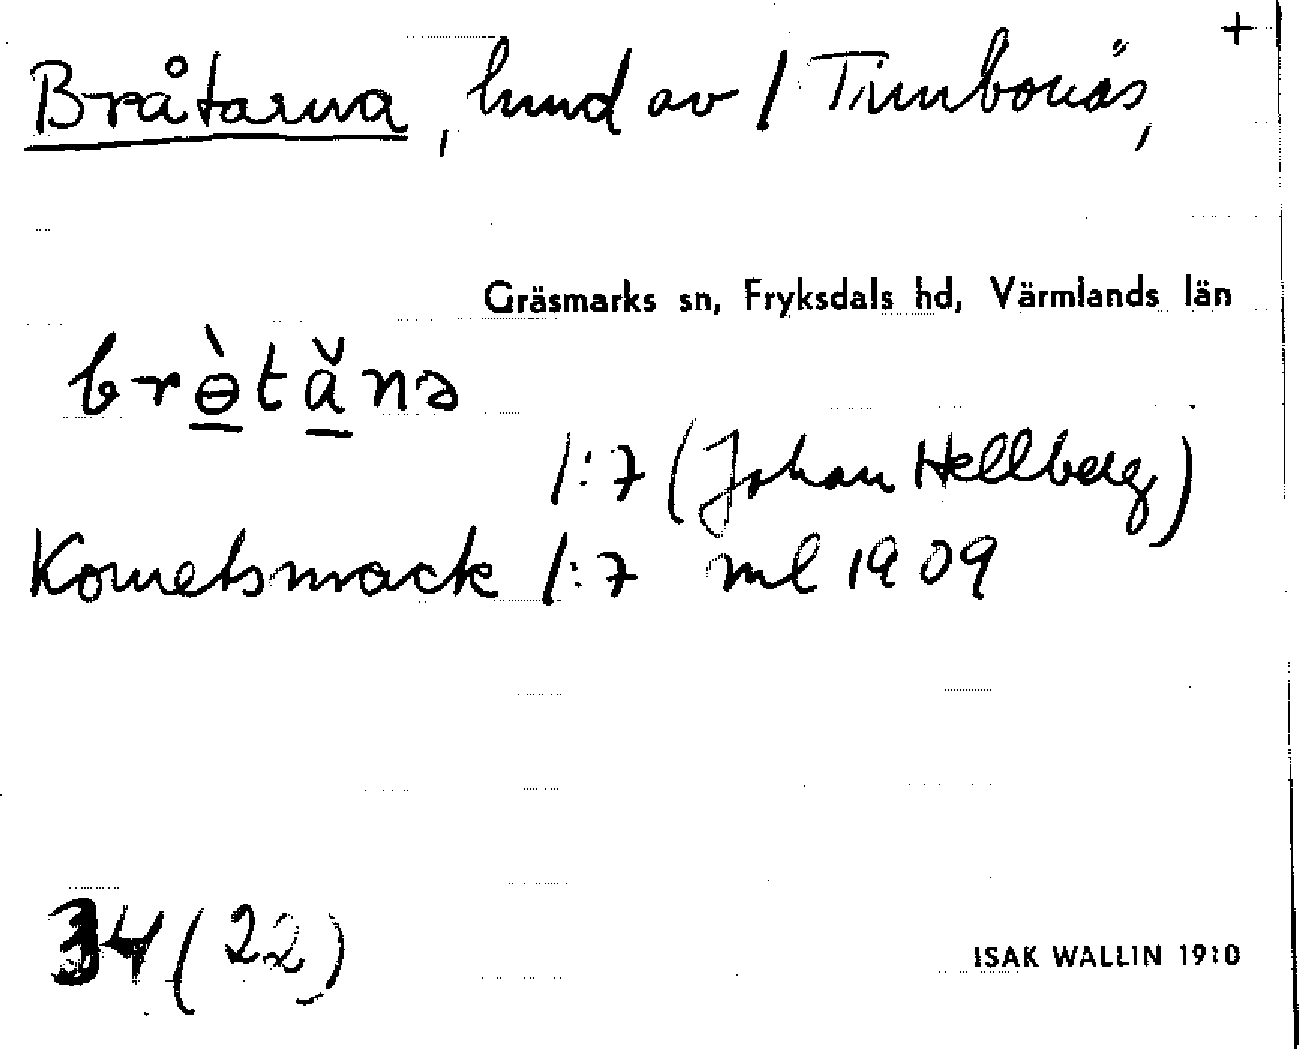 +
Bråtarna, hmd av 1 Timbonäs,
Gräsmarks sn, Fryksdals hd, Värmlands län
brɵ̀tǎnə
1:7 (Johan Hellberg)
1:7 ml 1909
34 (22)
ISAK WALLIN 1910